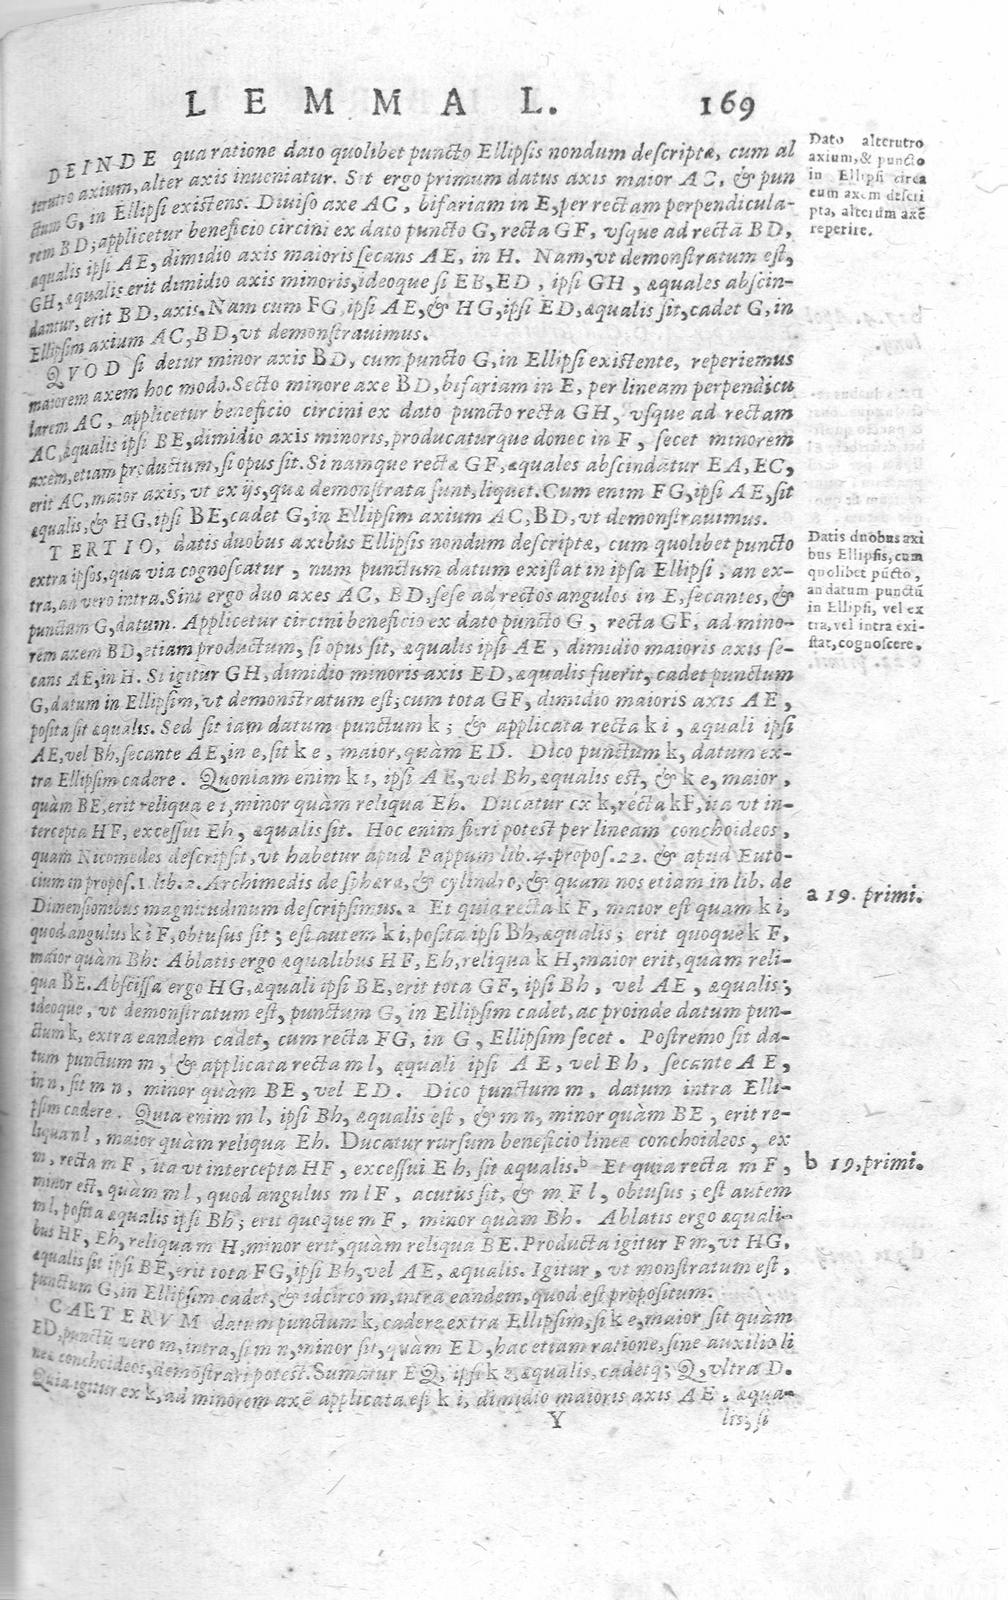 LEMMA L. 169
DEINDE qua ratione dato quolibet puncto Ellipsis nondum descriptæ, cum al
terutro axium, alter axis inueniatur. Sit ergo primum datus axis maior AC, & pun
ctum G, in Ellipsi existens. Diuiso axe AC, bifariam in E, per rectam perpendicula-
rem BD; applicetur beneficio circini ex dato puncto G, recta GF, vsque ad rectā BD,
æqualis ipsi AE, dimidio axis maioris secans AE, in H. Nam, vt demonstratum est,
GH, æqualis erit dimidio axis minoris, ideoque si EB, ED, ipsi GH, æquales abscin-
dantur, erit BD, axis. Nam cum FG, ipsi AE, & HG, ipsi ED, æqualis sit, cadet G, in
Ellipsim axium AC, BD, vt demonstrauimus.
QVOD si detur minor axis BD, cum puncto G, in Ellipsi existente, reperiemus
maiorem axem hoc modo. Secto minore axe BD, bifariam in E, per lineam perpendicu
larem AC, applicetur beneficio circini ex dato puncto recta GH, vsque ad rectam
AC, æqualis ipsi BE, dimidio axis minoris, producaturque donec in F, secet minorem
axem, etiam productum, si opus sit. Si namque rectæ GF, æquales abscindātur EA, EC,
erit AC, maior axis, vt ex ijs, quæ demonstrata sunt, liquet. Cum enim FG, ipsi AE, sit
æqualis, & HG, ipsi BE, cadet G, in Ellipsim axium AC, BD, vt demonstrauimus.
TERTIO, datis duobus axibus Ellipsis nondum descriptæ, cum quolibet puncto
extra ipsos, qua via cognoscatur, num punctum datum existat in ipsa Ellipsi, an ex-
tra, an vero intra. Sint ergo duo axes AC, BD, sese ad rectos angulos in E, secantes, &
punctum G, datum. Applicetur circini beneficio ex dato puncto G, recta GF, ad mino-
rem axem BD, etiam productum, si opus sit, æqualis ipsi AE, dimidio maioris axis se-
cans AE, in H. Si igitur GH, dimidio minoris axis ED, æqualis fuerit, cadet punctum
G, datum in Ellipsim, vt demonstratum est; cum tota GF, dimidio maioris axis AE,
posita sit æqualis. Sed sit iam datum punctum k; & applicata recta k i, æquali ipsi
AE, vel Bh, secante AE, in e, sit k e, maior, quàm ED. Dico punctum k, datum ex-
tra Ellipsim cadere. Quoniam enim k i, ipsi AE, vel Bh, æqualis est, & k e, maior,
quàm BE, erit reliqua e i, minor quàm reliqua Eh. Ducatur ex k, recta k F, ita vt in-
tercepta HF, excessui Eh, æqualis sit. Hoc enim fieri potest per lineam conchoideos,
quam Nicomedes descripsit, vt habetur apud Pappum lib. 4. propos. 22. & apud Euto-
cium in propos. 1. lib. 2. Archimedis de sphæra, & cylindro, & quam nos etiam in lib. de
Dimensionibus magnitudinum descripsimus. a Et quia recta k F, maior est quam k i,
quod angulus k i F, obtusus sit; est autem k i, posita ipsi Bh, æqualis; erit quoque k F,
maior quàm Bh: Ablatis ergo æqualibus HF, Eh, reliqua k H, maior erit, quàm reli-
qua BE. Abscissa ergo HG, æquali ipsi BE, erit tota GF, ipsi Bh, vel AE, æqualis;
ideoque, vt demonstratum est, punctum G, in Ellipsim cadet, ac proinde datum pun-
ctum k, extra eandem cadet, cum recta FG, in G, Ellipsim secet. Postremo sit da-
tum punctum m, & applicata recta m l, æquali ipsi AE, vel Bh, secante AE,
in n, sit m n, minor quàm BE, vel ED. Dico punctum m, datum intra Elli-
psim cadere. Quia enim m l, ipsi Bh, æqualis est, & m n, minor quàm BE, erit re-
liqua n l, maior quàm reliqua Eh. Ducatur rursum beneficio lineæ conchoideos, ex
m, recta m F, ita vt intercepta HF, excessui Eh, sit æqualis. b Et quia recta m F,
minor est, quàm m l, quod angulus m l F, acutus sit, & m F l, obtusus; est autem
m l, posita æqualis ipsi Bh; erit quoque m F, minor quàm Bh. Ablatis ergo æquali-
bus HF, Eh, reliqua m H, minor erit, quàm reliqua BE. Producta igitur Fm, vt HG,
æqualis sit ipsi BE, erit tota FG, ipsi Bh, vel AE, æqualis. Igitur, vt monstratum est,
punctum G, in Ellipsim cadet, & idcirco m, intra eandem, quod est propositum.
CAETERVM datum punctum k, cadere extra Ellipsim, si k e, maior sit quàm
ED, punctū vero m, intra, si m n, minor sit, quàm ED, hac etiam ratione, sine auxilio li
neæ conchoideos, demōstrari potest. Sumatur EQ, ipsi k e, æqualis, cadetq; Q, vltra D.
Quia igitur ex k, ad minorem axē applicata est k i, dimidio maioris axis AE, æqua-
Y lis; si
Dato alterutro
axium, & puncto
in Ellipsi circa
eum axem descri
pta, alterum axē
reperire.
Datis duobus axi
bus Ellipsis, cum
quolibet pūcto,
an datum punctū
in Ellipsi, vel ex
tra, vel intra exi-
stat, cognoscere.
a 19. primi.
b 19. primi.